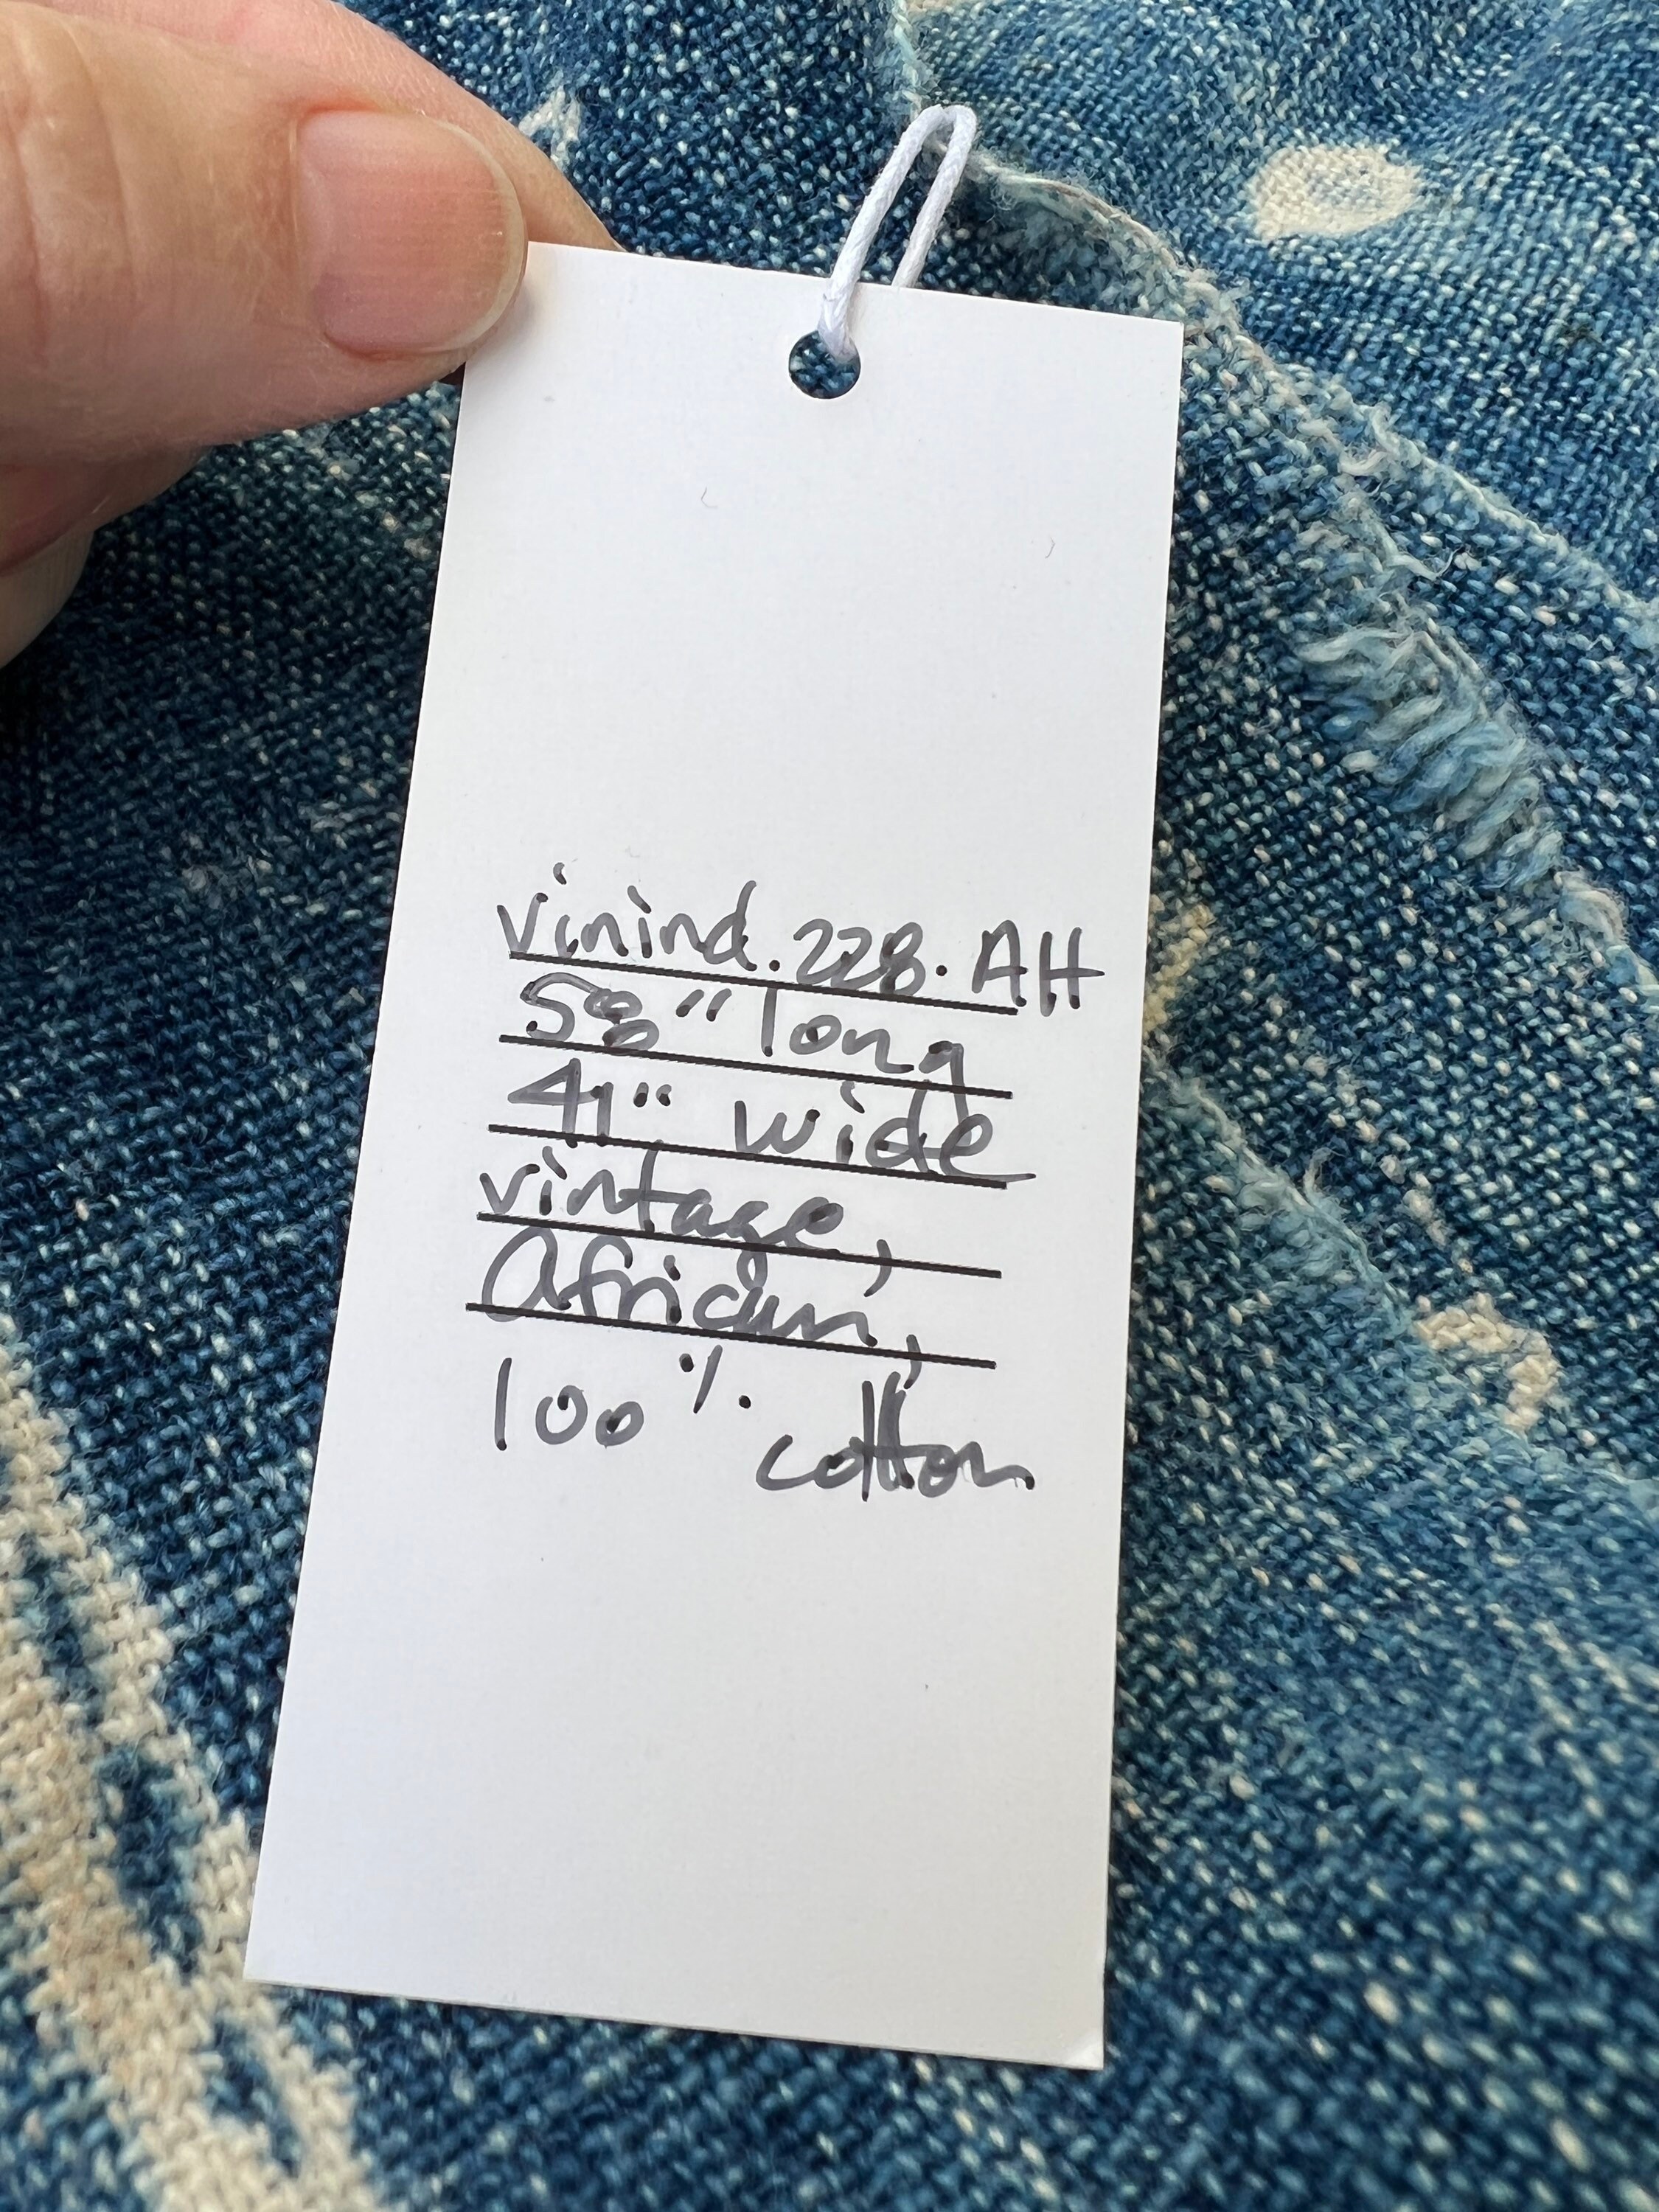 vinind.228.AH
58" long
41" wide
vintage,
African,
100% cotton